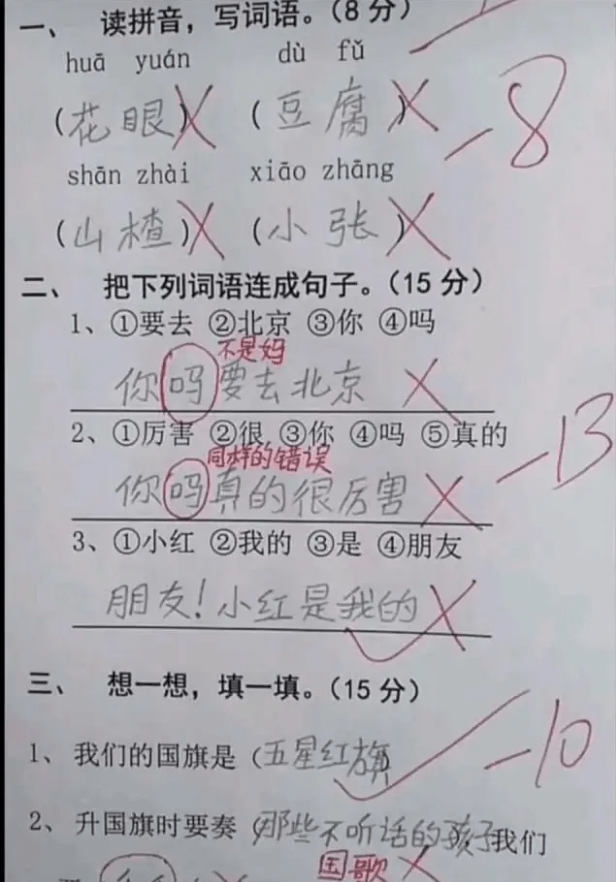 一、 读拼音，写词语。（8分）
huā yuán dù fǔ
（花眼）（豆腐）
-8
shān zhài xiāo zhāng
（山楂）（小张）
二、 把下列词语连成句子。（15分）
1、①要去 ②北京 ③你 ④吗
不是妈
你吗要去北京
2、①厉害 ②很 ③你 ④吗 ⑤真的
同样的错误
-13
你吗真的很厉害
3、①小红 ②我的 ③是 ④朋友
朋友！小红是我的
三、 想一想，填一填。（15分）
-10
1、我们的国旗是（五星红旗
2、升国旗时要奏（那些不听话的孩子 我们
国歌